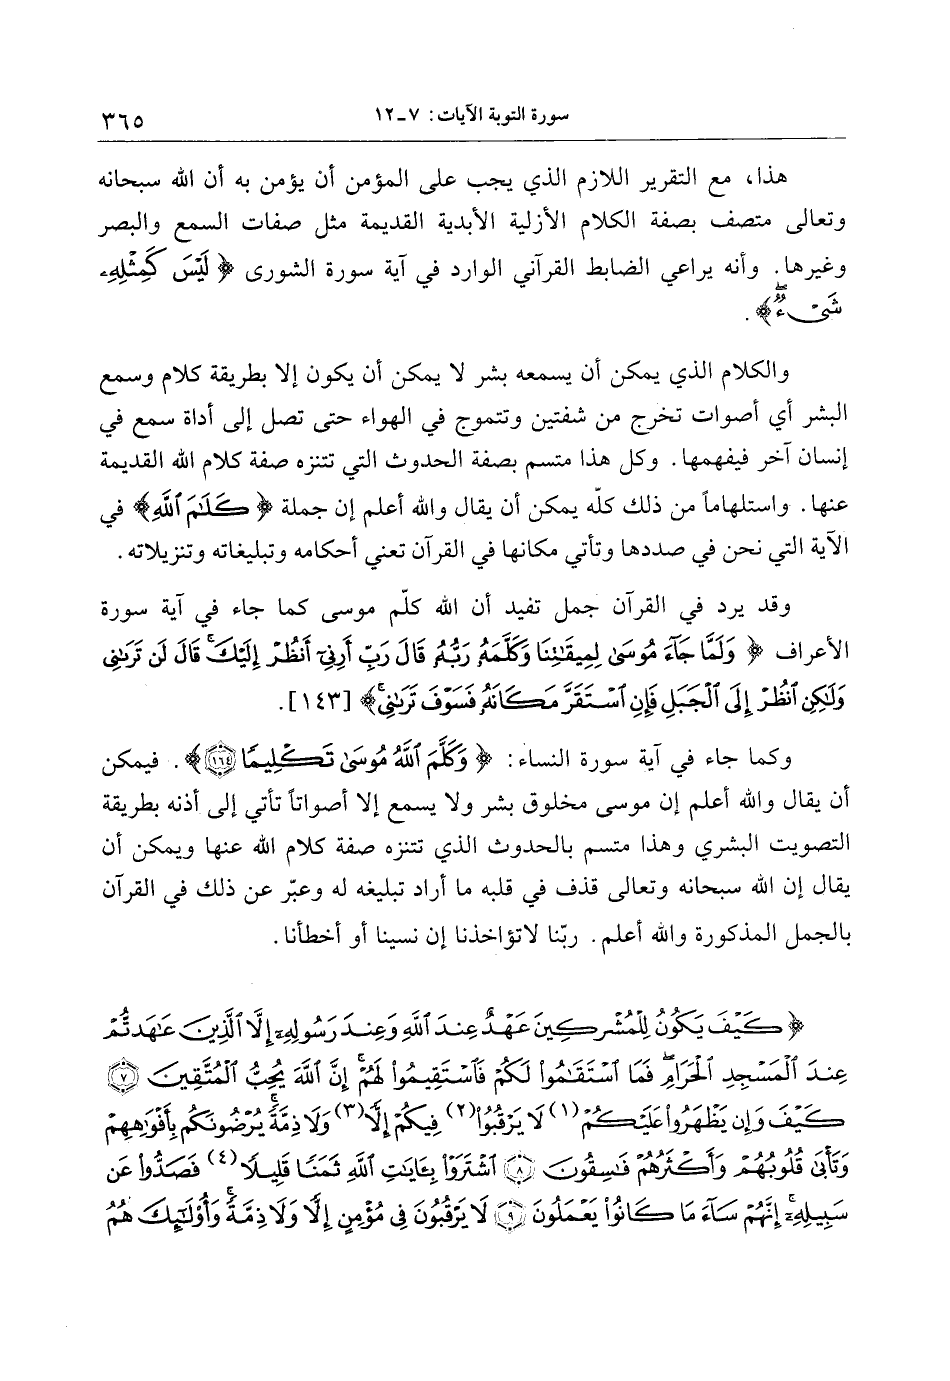 سورة التوبة الآيات: ٧-١٢
٣٦٥
هذا، مع التقرير اللازم الذي يجب على المؤمن أن يؤمن به أن الله سبحانه
وتعالى متصف بصفة الكلام الأزلية الأبدية القديمة مثل صفات السمع والبصر
وغيرها. وأنه يراعي الضابط القرآني الوارد في آية سورة الشورى ﴿ لَيْسَ كَمِثْلِهِۦ
شَىْءٌۖ ﴾.
والكلام الذي يمكن أن يسمعه بشر لا يمكن أن يكون إلا بطريقة كلام وسمع
البشر أي أصوات تخرج من شفتين وتتموج في الهواء حتى تصل إلى أداة سمع في
إنسان آخر فيفهمها. وكل هذا متسم بصفة الحدوث التي تتنزه صفة كلام الله القديمة
عنها. واستلهاماً من ذلك كلّه يمكن أن يقال والله أعلم إن جملة ﴿ كَلَٰمَ ٱللَّهِ ﴾ في
الآية التي نحن في صددها وتأتي مكانها في القرآن تعني أحكامه وتبليغاته وتنزيلاته.
وقد يرد في القرآن جمل تفيد أن الله كلّم موسى كما جاء في آية سورة
الأعراف ﴿ وَلَمَّا جَآءَ مُوسَىٰ لِمِيقَٰتِنَا وَكَلَّمَهُۥ رَبُّهُۥ قَالَ رَبِّ أَرِنِىٓ أَنظُرْ إِلَيْكَۚ قَالَ لَن تَرَىٰنِى
وَلَٰكِنِ ٱنظُرْ إِلَى ٱلْجَبَلِ فَإِنِ ٱسْتَقَرَّ مَكَانَهُۥ فَسَوْفَ تَرَىٰنِىۚ ﴾ [١٤٣].
وكما جاء في آية سورة النساء: ﴿ وَكَلَّمَ ٱللَّهُ مُوسَىٰ تَكْلِيمًا ١٦٤ ﴾. فيمكن
أن يقال والله أعلم إن موسى مخلوق بشر ولا يسمع إلا أصواتاً تأتي إلى أذنه بطريقة
التصويت البشري وهذا متسم بالحدوث الذي تتنزه صفة كلام الله عنها ويمكن أن
يقال إن الله سبحانه وتعالى قذف في قلبه ما أراد تبليغه له وعبّر عن ذلك في القرآن
بالجمل المذكورة والله أعلم. ربّنا لاتؤاخذنا إن نسينا أو أخطأنا.
﴿ كَيْفَ يَكُونُ لِلْمُشْرِكِينَ عَهْدٌ عِندَ ٱللَّهِ وَعِندَ رَسُولِهِۦٓ إِلَّا ٱلَّذِينَ عَٰهَدتُّمْ
عِندَ ٱلْمَسْجِدِ ٱلْحَرَامِۖ فَمَا ٱسْتَقَٰمُوا۟ لَكُمْ فَٱسْتَقِيمُوا۟ لَهُمْۚ إِنَّ ٱللَّهَ يُحِبُّ ٱلْمُتَّقِينَ ٧
كَيْفَ وَإِن يَظْهَرُوا۟ عَلَيْكُمْ (١) لَا يَرْقُبُوا۟ (٢) فِيكُمْ إِلًّا (٣) وَلَا ذِمَّةًۚ يُرْضُونَكُم بِأَفْوَٰهِهِمْ
وَتَأْبَىٰ قُلُوبُهُمْ وَأَكْثَرُهُمْ فَٰسِقُونَ ٨ ٱشْتَرَوْا۟ بِـَٔايَٰتِ ٱللَّهِ ثَمَنًا قَلِيلًا (٤) فَصَدُّوا۟ عَن
سَبِيلِهِۦٓۚ إِنَّهُمْ سَآءَ مَا كَانُوا۟ يَعْمَلُونَ ٩ لَا يَرْقُبُونَ فِى مُؤْمِنٍ إِلًّا وَلَا ذِمَّةًۚ وَأُو۟لَٰٓئِكَ هُمُ